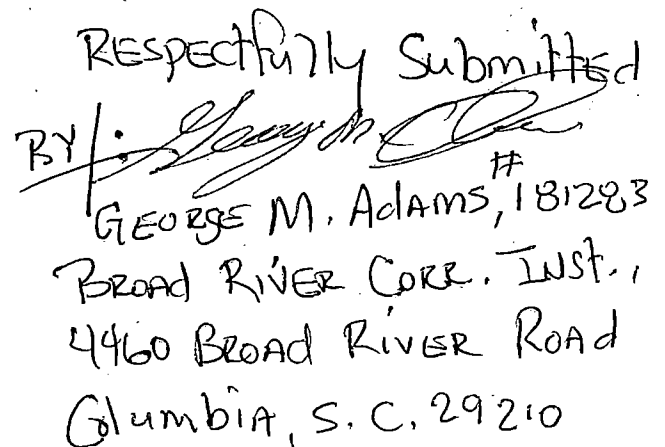 RESPECtfully Submitted
BY:
GEORGE M. AdAMS, #181283
BROAd RIVER CORR. INSt.,
4460 BROAd RIVER ROAd
Columbia, S.C. 29210